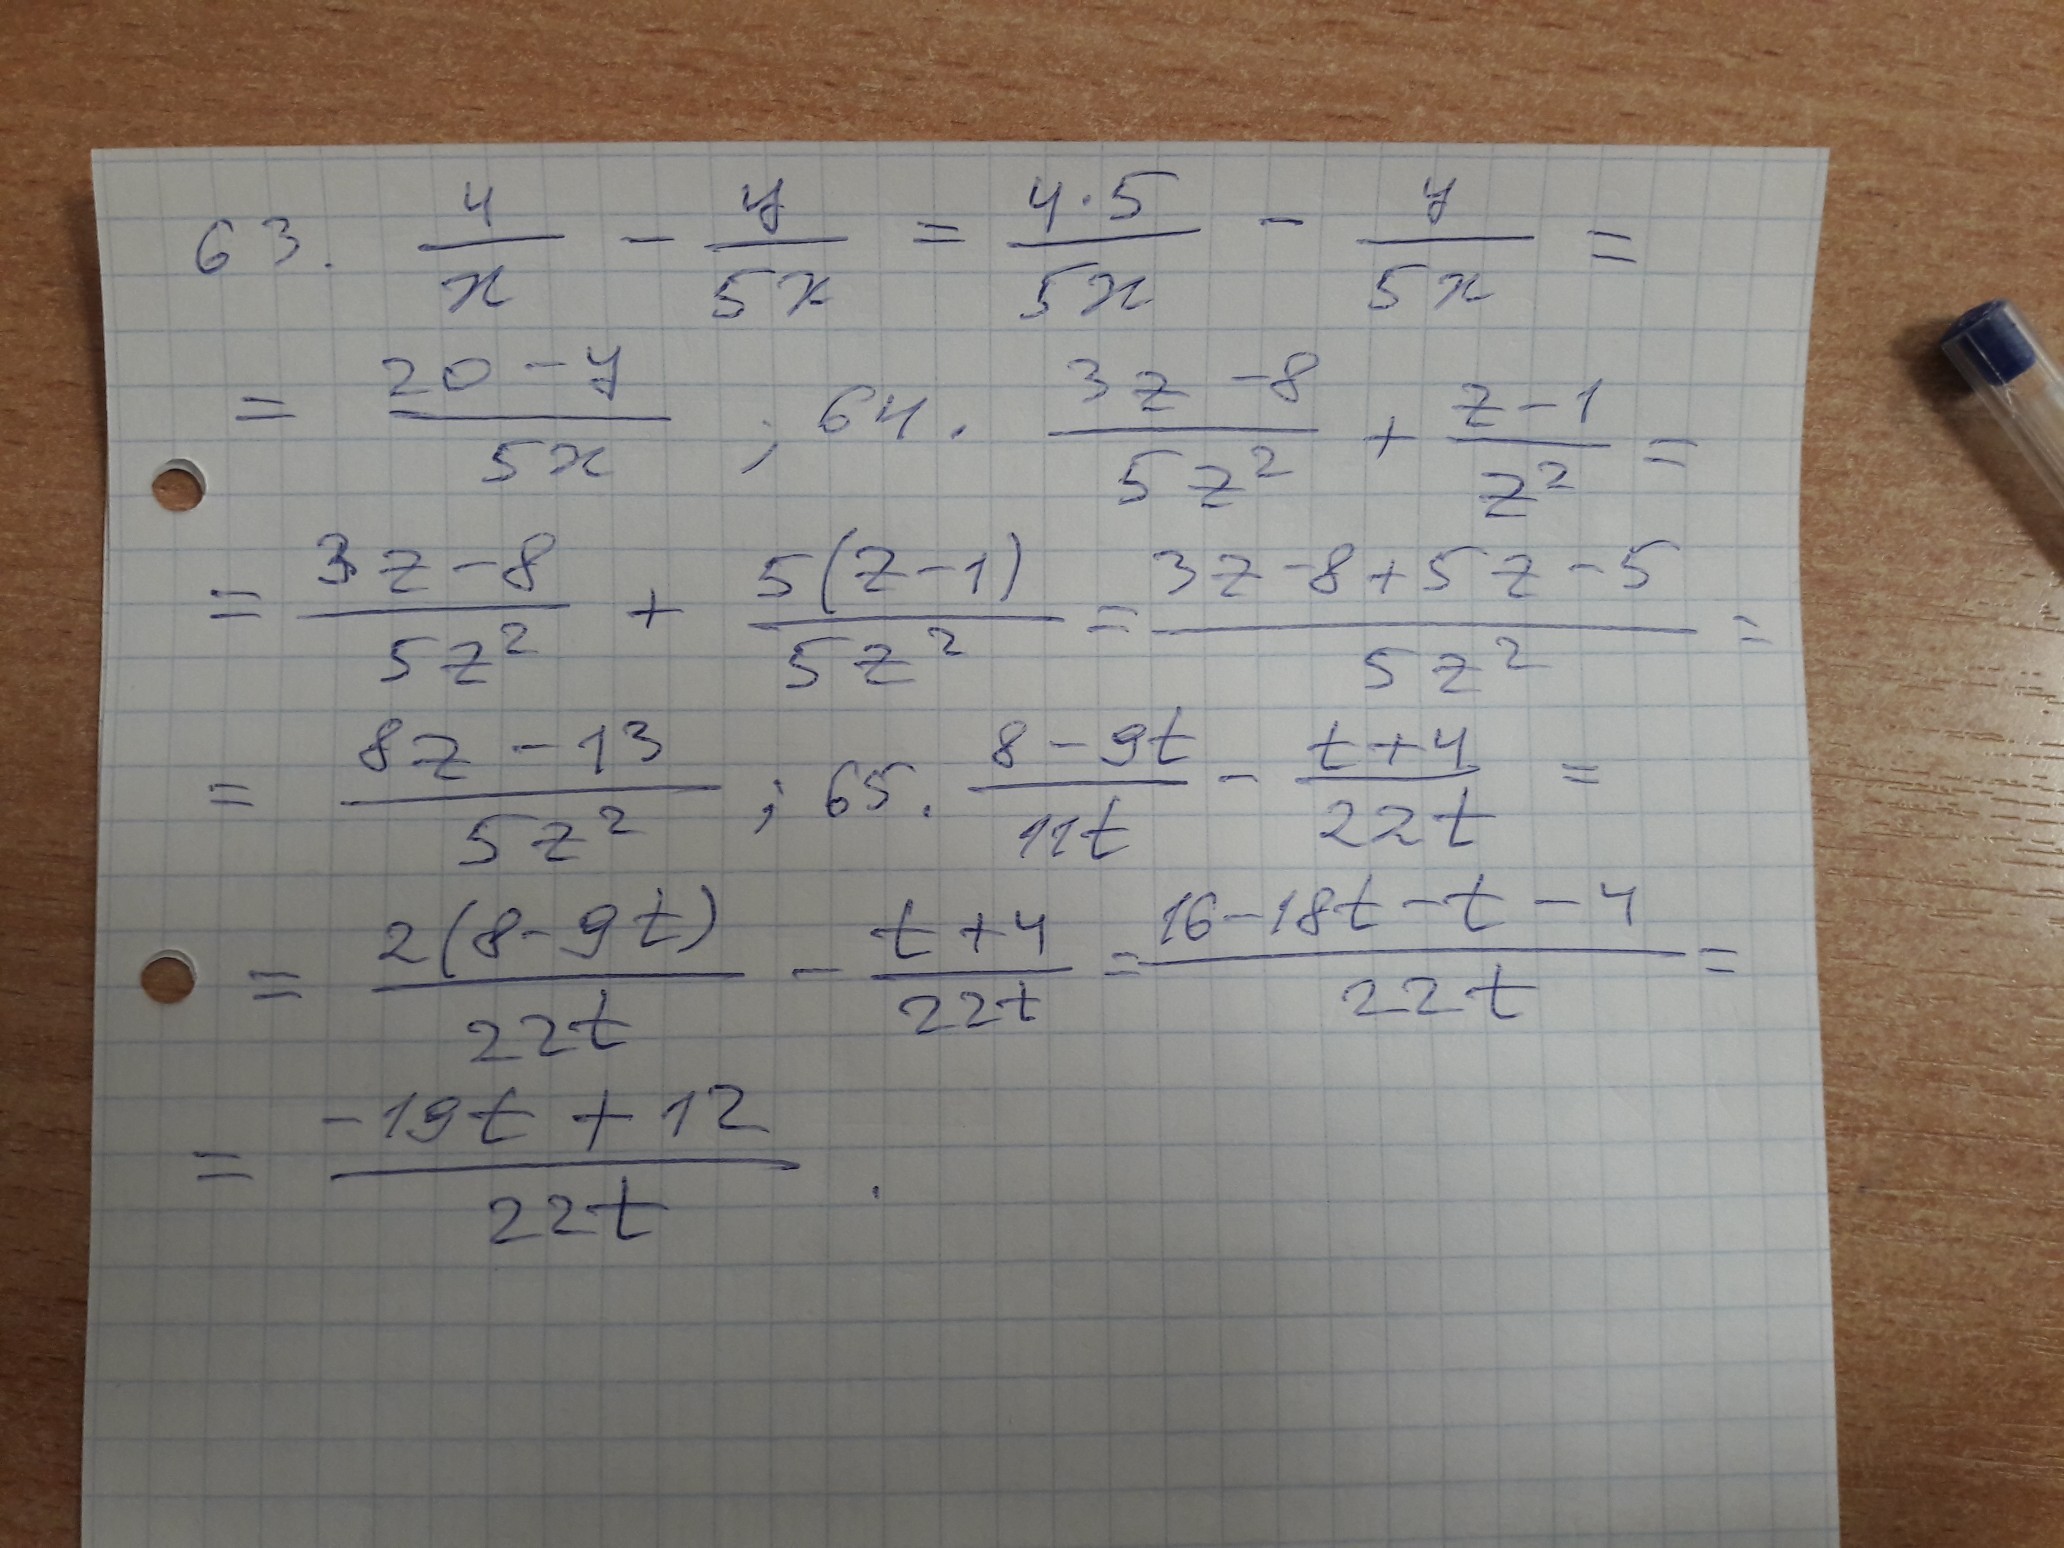 63. 4/x - y/5x = 4·5/5x - y/5x =
= 20-y/5x ; 64. 3z-8/5z² + z-1/z² =
= 3z-8/5z² + 5(z-1)/5z² = 3z-8+5z-5/5z² =
= 8z-13/5z² ; 65. 8-9t/11t - t+4/22t =
= 2(8-9t)/22t - t+4/22t = 16-18t-t-4/22t =
= -19t+12/22t .